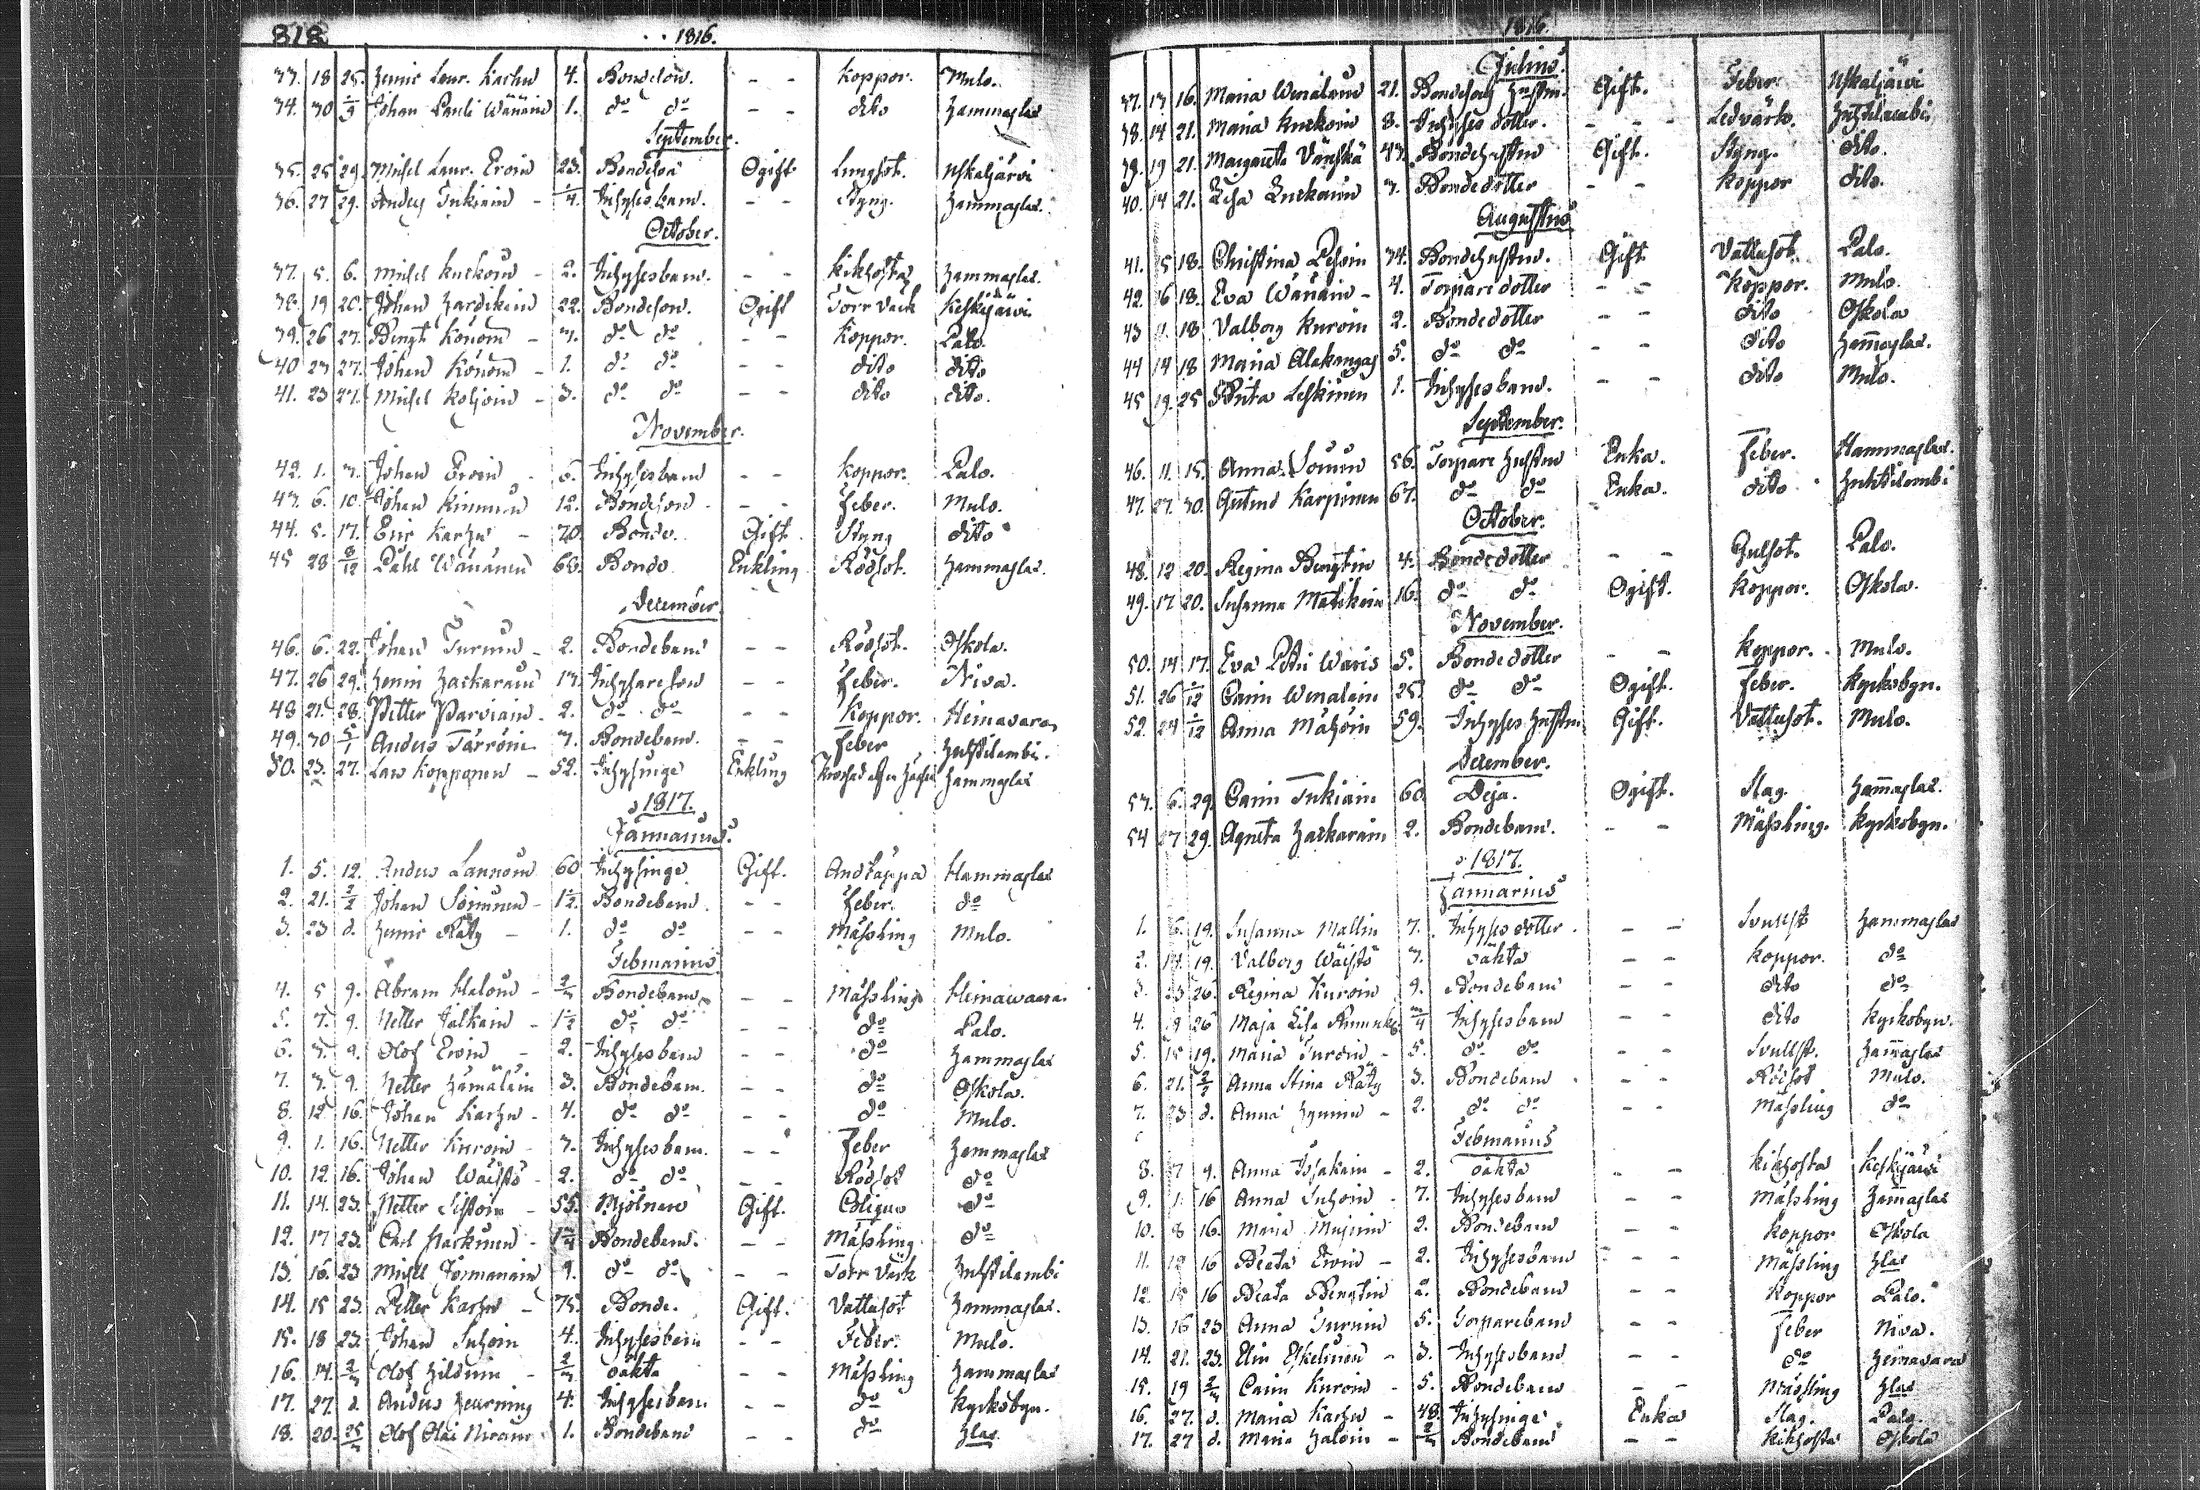 818
1816.
33. 18 25. Henric Laur. Karhu 4. Bondeson. - - Koppor. Mulo.
34. 30 1/9 Johan Pauli Wänäin 1. do do - - dito Hammaslax
September.
35. 25 29. Michel Laur. Eroin 23. Bondeson Ogift Lungsot. Uskaljärvi
36. 27 29. Anders Tukiain - 1/4. Inhysesbarn. - - Styng. Hammaslax.
October.
37. 5. 6. Michel Kuckoin - 2. Inhysesbarn. - - Kikhosta Hammaslax.
38. 19 20. Johan Hardikain 22. Bondeson. Ogift Torr värk Keskijärvi
39. 26 27. Bengt Könöin - 3. do do - - Koppor. Palo.
40 23 27. Johan Könöin - 1. do do - - dito dito
41. 23 27. Michel Koljoin - 3. do do - - dito dito.
November.
42. 1. 3. Johan Eroin - 5. Inhysesbarn - - Koppor. Palo.
43. 6. 10. Johan Kinnuin 12. Bondeson - - Feber. Mulo.
44. 5. 17. Eric Karhu - 70. Bonde. Gift Styng dito
45 28 8/12 Påhl Wänäinen 63. Bonde Enkling Rödsot. Hammaslax.
December
46. 6. 22. Johan Turuin - 2. Bondebarn - - Rödsot. Oskola.
47. 26 29. Henric Hackarain 13. Inhysareson - - Feber. Niva.
48 21. 28. Petter Parviain. 2. do do - - Koppor. Heinavara
49. 30 5/1 Anders Tarroin 3. Bondebarn. - - Feber Huhtilambi.
50. 23. 27. Lars Kopponen - 52. Inhysinge Enkling Hammaslax
1817.
Januarius.
1. 5. 12. Anders Lannoin 60 Inhysinge Gift. Andtäppa Hammaslax
2. 21. 2/2 Johan Sormuin - 1 1/2. Bondebarn. - - Feber. do
3. 23 d. Henric Räty - 1. do do - - Mässling Mulo.
Februarius
4. 5 9. Abram Haloin - Bondebarn - - Mässling Heinawaara.
5. 7. 9. Petter Jalkain - 1 1/2 do do - - do Palo.
6. 3. 9. Olof Eroin - 2. Inhysesbarn - - do Hammaslax
7. 3. 9. Petter Hämäläin 3. Bondebarn. - - do Oskola.
8. 12 16. Johan Karhu - 4. do do - - do Mulo.
9. 1. 16. Petter Kuroin - 3. Inhysesbarn. - - Feber Hammaslax
10. 12 16. Johan Wäistö - 2. do do - - Rödsot do
11. 14. 23. Petter Sistoin - 55. Mjölnare Gift. Colique do
12. 17 23. Carl Hackuin - 1 3/4 Bondebarn. - - Mässling do
13. 16. 23 Michel Jormanain 9. do do - - Torr värk Huhtilambi
14. 15 23. Petter Karhu - 75. Bonde. Gift. Vattusot Hammaslax.
15. 18 23. Johan Suhoin 4. Inhysesbarn - - Feber. Mulo.
16. 14. 2/3 Olof Hilduin - oäkta - - Mässling Hammaslax
17. 27. d. Anders Heurning 4. Inhysesbarn - - do Kyrkobyn.
18. 20. Olof Olai Nirain 1. Bondebarn - - do Hlax.
1816.
Julius.
37. 13 16. Maria Wenäläin 21. Bondesons Hustru. Gift. Feber. Uskaljärvi
38. 14 21. Maria Kuckoin 8. Inhyses dotter. - - Ledvärk. Huhtilambi
39. 19 21. Margareta Vänskä 43. Bondehustru Gift. Styng. dito.
40. 14 21. Lisa Kuckoin 3. Bondedotter - - Koppor dito.
Augustus
41. 15 18. Christina Pesoin 34. Bondehustru. Gift Vattusot. Palo.
42. 16 18. Eva Wänäin - 4. Torpare dotter - - Koppor. Mulo.
43 11. 18 Valborg Kuroin 2. Bondedotter - - dito Oskola
44 14 18 Maria Alakangas 5. do do - - dito Hammaslax.
45 19. 25 Brita Leskinen 1. Inhysesbarn. - - dito Mulo.
September.
46. 11. 15. Anna Soinin 56. Torpare Hustru Enka. Feber. Hammaslax.
47. 27. 30. Gertrud Karpinen 67. do do Enka. dito Huhtilambi
October.
48. 12 20. Regina Bengtin 4. Bondedotter - - Gulsot. Palo.
49. 17 20. Susanna Matikain 16. do do Ogift. Koppor. Oskola.
November.
50. 14 17. Eva Petri Waris 5. Bondedotter - - Koppor. Mulo.
51. 26 1/12 Carin Wenäläin 25. do do Ogift. Feber. Kyrkobyn.
52. 24 1/12 Anna Mähöin 59. Inhyses Hustru Gift. Vattusot. Mulo.
December.
53. 6. 29. Carin Tukiain 60 Deja. Ogift. Slag. Hammaslax.
54 27 29. Agneta Hackarain 2. Bondebarn. - - Mässling. Kyrkobyn.
1817.
Januarius
1. 6. 19. Susanna Mallin 7. Inhyses dotter. - - Svullst Hammaslax
2. 14. 19. Valborg Wäistö 3. oäkta - - Koppor. do
3. 23 26. Regina Kuroin 9. Bondebarn - - dito do
4. 19 26 Maja Lisa Inhysesbarn - - dito Kyrkobyn.
5. 15 19. Maria Turoin - 5. do do - - Svullst. Hammaslax
6. 21. 2/2 Anna Stina Räty 3. Bondebarn - - Rödsot Mulo.
7. 23 d. Anna Hynnin - 2. do do - - Mässling do
Februarius
8. 7 9. Anna Issakain - 2. oäkta - - Kikhosta Keskijärvi
9. 1. 16 Anna Suhoin - 7. Inhysesbarn - - Mässling Hammaslax
10. 8 16. Maria Mujuin 2. Bondebarn - - Koppor Oskola
11. 12 16 Beata Eroin - 2. Inhysesbarn - - Mässling Hlax
12. 15 16 Beata Bengtin 2. Bondebarn - - Koppor Palo.
13. 16 23 Anna Turuin 5. Torparebarn - - Feber Niva.
14. 21. 23. Elin Eskelinen - 3. Inhysesbarn - - do Heinavara
15. 19 2/3 Carin Kuroin - 5. Bondebarn - - Mässling Hlax
16. 27. d. Maria Karhu - 48. Inhysinge Enka Slag. Palo.
17. 27 d. Maria Haloin - Bondebarn - - Kikhosta Oskola